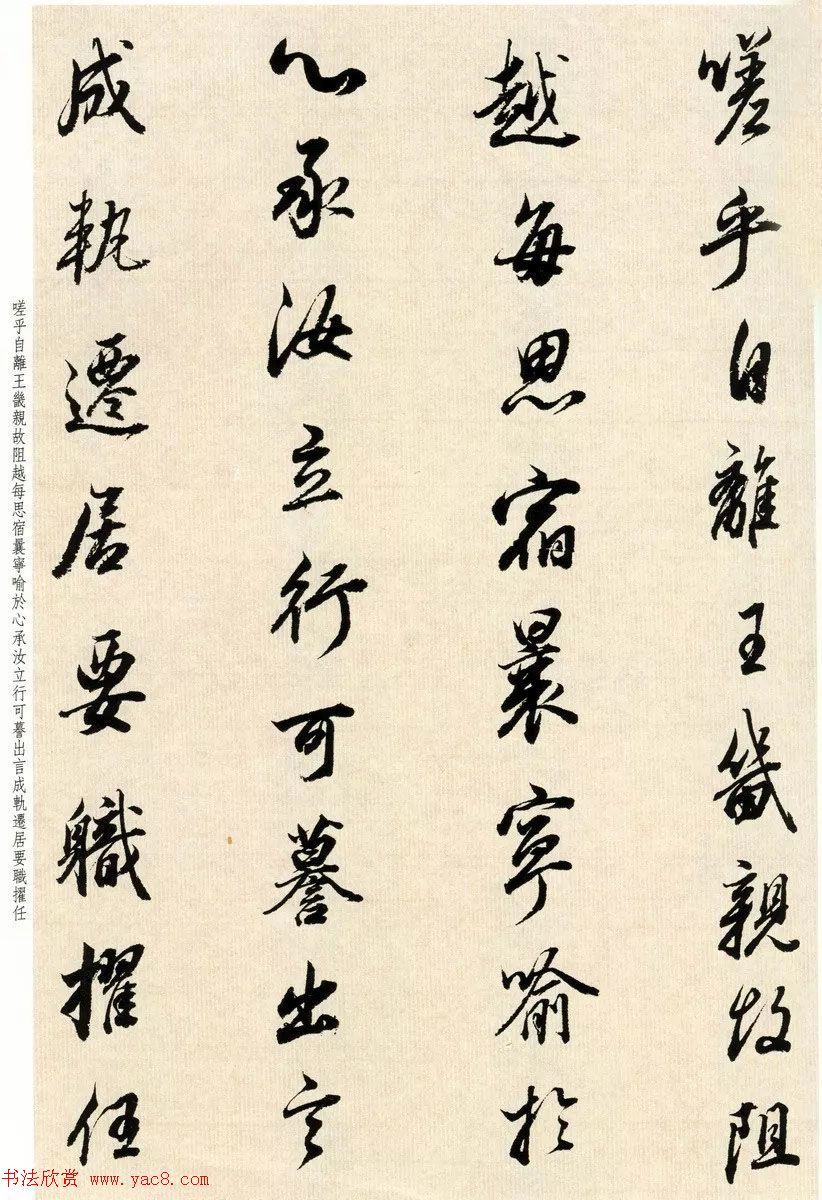 嗟乎自離王畿親故阻
越每思宿曩寧喻於
心承汝立行可謩出言
成軌遷居要職擢任
嗟乎自離王畿親故阻越每思宿曩寧喻於心承汝立行可謩出言成軌遷居要職擢任
书法欣赏 www.yac8.com